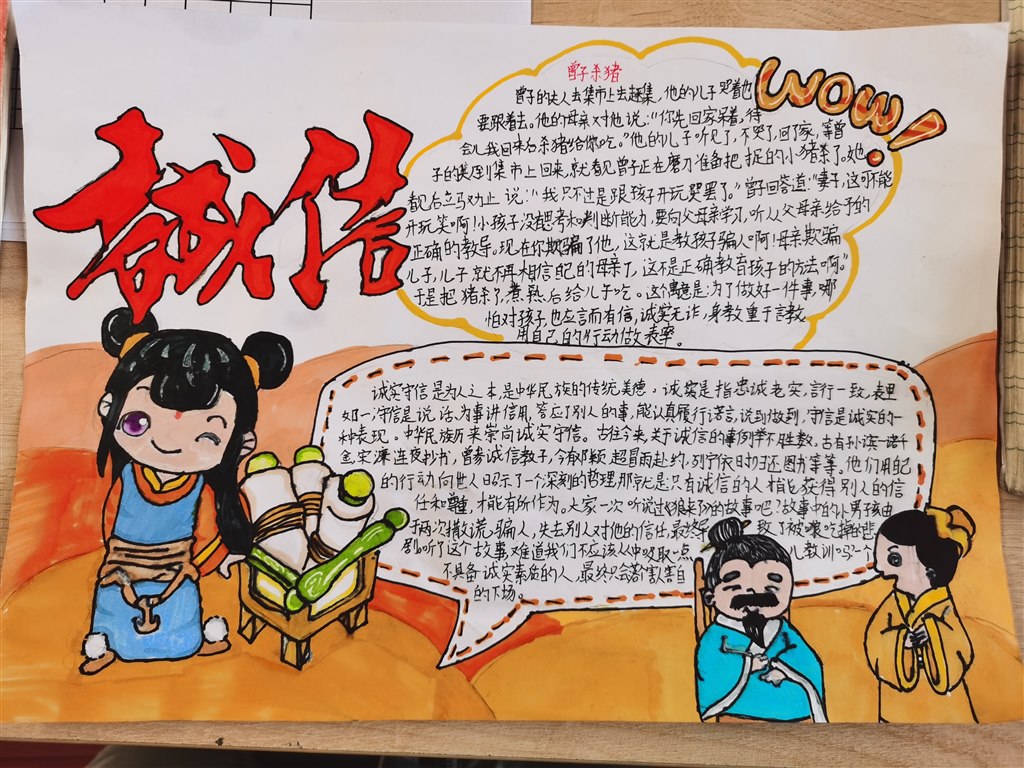 诚信
WOW!
曾子杀猪
曾子的夫人去集市上去赶集，他的儿子哭着也
要跟着去。他的母亲对他说："你先回家呆着，待
会儿我回来后杀猪给你吃。"他的儿子听见了，不哭了，回了家，等曾
子的妻回到集市上回来，就看见曾子正在磨刀准备把捉的小猪杀了。她
就后立马劝止说："我只不过是跟孩子开玩笑罢了。"曾子回答道："妻子，这可不能
开玩笑啊！小孩子没有思考和判断能力，要向父母亲学习，听从父母亲给予的
正确的教导。现在你欺骗了他，这就是教孩子骗人啊！母亲欺骗
儿子，儿子就不再相信自己的母亲了，这不是正确教育孩子的方法啊。"
于是把猪杀了，煮熟后给儿子吃。这个寓意是：为了做好一件事，哪
怕对孩子，也应言而有信，诚实无诈，身教重于言教，
用自己的行动做表率。
诚实守信是为人之本，是中华民族的传统美德。诚实是指忠诚老实，言行一致，表里
如一；守信是说话、办事讲信用，答应了别人的事，能认真履行诺言，说到做到，守信是诚实的一
种表现。中华民族历来崇尚诚实守信。古往今来，关于诚信的事例举不胜数，古有朴满一诺千
金，宋濂连夜抄书，曾参诚信教子，今有 超冒雨赴约，列宁依日归还图书等等，他们用自己
的行动向世人昭示了一个深刻的哲理，那就是：只有诚信的人才能获得别人的信
任和尊重，才能有所作为。大家一次听说过《狼来了》的故事吧？故事中的小男孩由
于两次撒谎骗人，失去别人对他的信任，最终导致了被狼吃掉的悲
剧，听了这个故事，难道我们不应该从中吸取一点儿教训吗？一个
不具备诚实素质的人，最终只会落个害人害自
的下场。